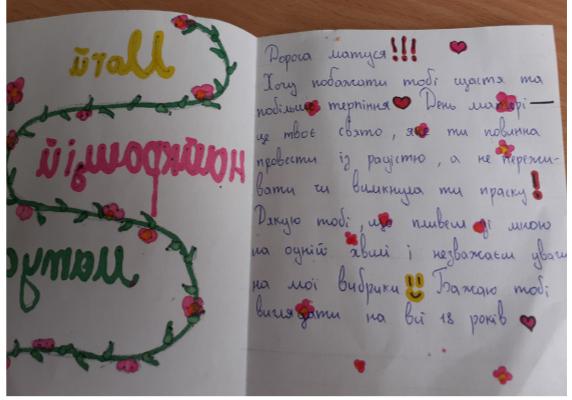 Моїй
найкращій
матус
Дорога матуся!!!
Хочу побажати тобі щастя та
побільше терпіння День матері —
це твоє свято, яке ти повинна
провести із радістю, а не пережи-
вати чи вимкнула ти праску!
Дякую тобі, що пливеш зі мною
на одній хвилі і незважаєш уваги
на мої вибрики!! Бажаю тобі
виглядати на всі 18 років